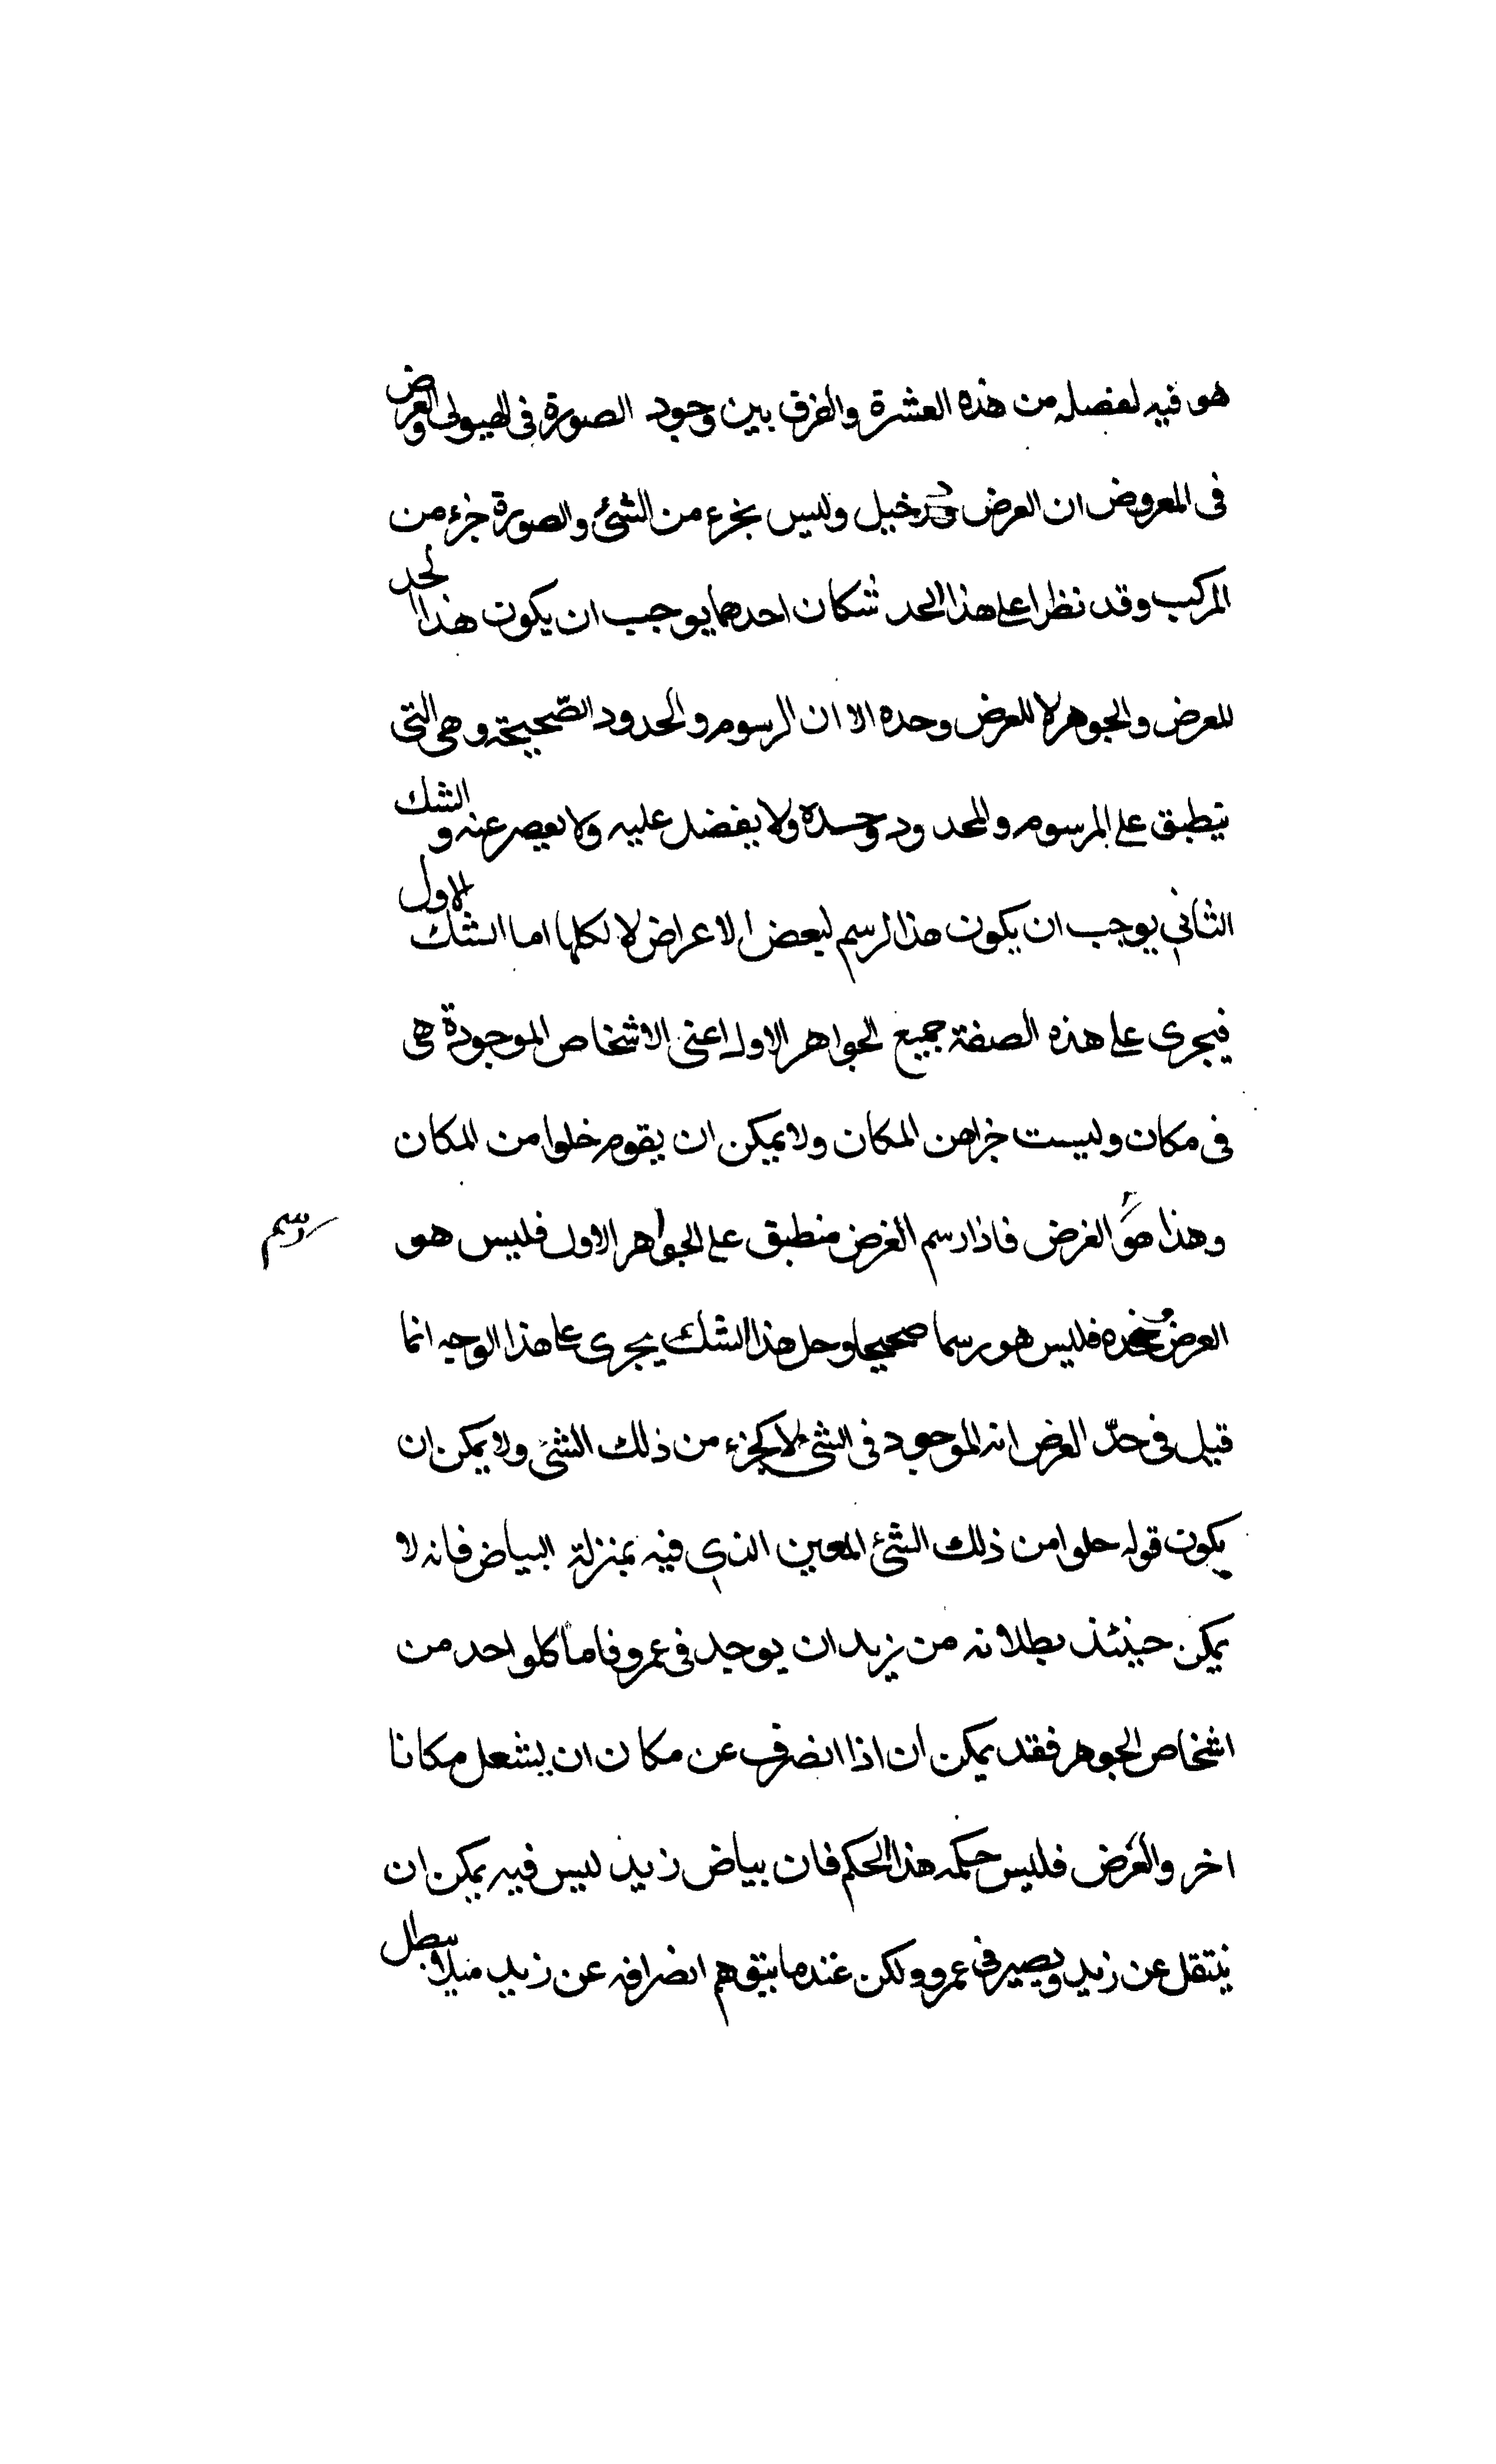 هو فيه لفصله من هذه العشرة والفرق بين وجود الصورة فى الهيولى والعرض
فى المعروض ان العرض دخيل وليس بجزء من الشئ والصورة جزء من
المركب وقد نظرا على هذا الحد شكان احدهما يوجب ان يكون هذا الحد
للعرض والجوهر لا للعرض وحده الا ان الرسوم والحدود الصحيحة وهى التى
تنطبق على المرسوم والمحدود وحده ولا يفضل عليه ولا يقصر عنه والشك
الثانى يوجب ان يكون هذا الرسم لبعض الاعراض لا لكلها اما الشك الاول
فيجرى على هذه الصفة جميع الجواهر الاول اعنى الاشخاص الموجودة هى
فى مكان وليست جزا من المكان ولا يمكن ان يقوم خلوا من المكان
وهذا هو العرض فاذا رسم العرض منطبق على الجواهر الاول فليس هو
رسم
العرض وحده فليس هو رسما صحيحا وحل هذا الشك يجرى على هذا الوجه انما
قيل فى حدّ العرض انه الموجود فى الشئ لا كجزء من ذلك الشئ ولا يمكن ان
يكون قوله خلوا من ذلك الشئ المعين الذى فيه بمنزلة البياض فانه لا
يمكن حينئذ بطلانه من زيد ان يوجد فى عمرو فاما كلواحد من
اشخاص الجوهر فقد يمكن ان اذا انصرف عن مكان ان يشغل مكانا
اخر والعرض فليس حكمه هذا الحكم فان بياض زيد ليس فيه يمكن ان
ينتقل عن زيد ويصير فى عمرو ولكن عندما يتوهم انصرافه عن زيد يبطل